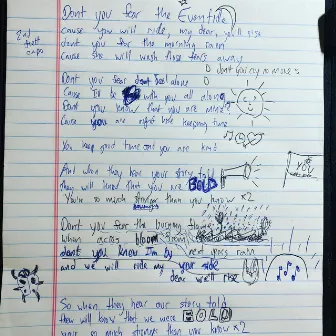 Dont you fear the Eventide
cause you will ride, my dear, you'll rise
dont you fear the morning rain
cause she will wash those fears away
Dont you fear dont feel alone
Cause I'll be with you all along
Dont you know that you are mine
Cause you are right here keeping time
You keep good time and you are kind
And when they hear your story told
They will know that you are BOLD
You're so much stronger than you know x2
YOU
Dont you fear the burning flames
when acres bloom
dont you know I'm by
and we will ride my your side
dear we'll rise
So when they hear our story told
They will know that we were BOLD
your so much stronger than you know x2